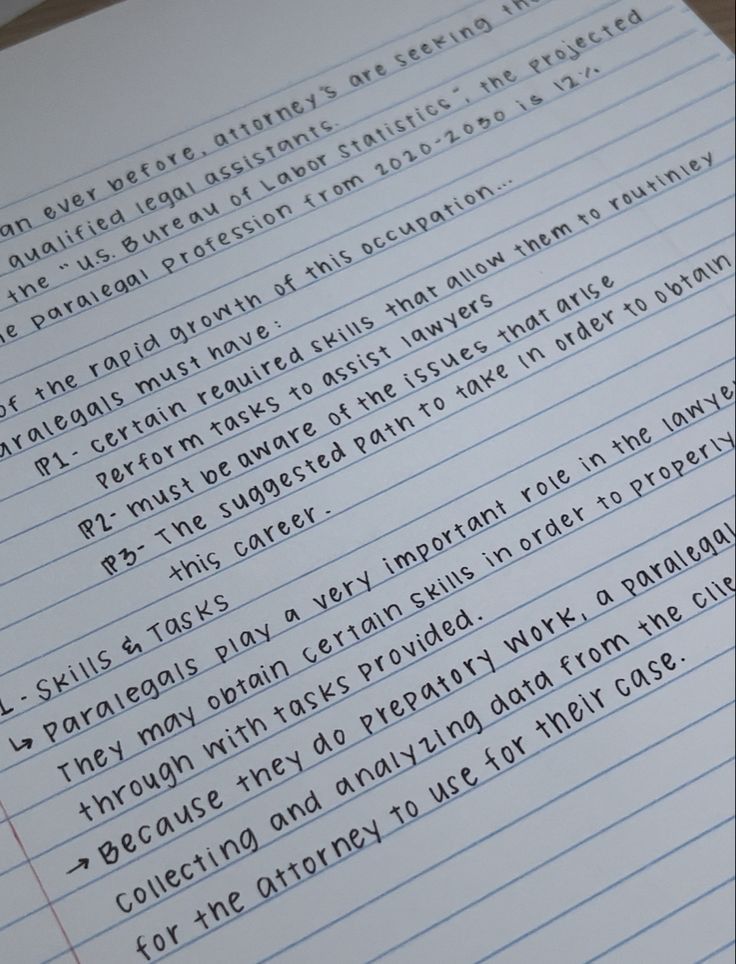 an ever before, attorney's are seeking
qualified legal assistants.
the "U.S. Bureau of Labor Statistics", the projected
paralegal profession from 2020-2030 is 12%
of the rapid growth of this occupation...
aralegals must have:
P1- certain required skills that allow them to routinley
perform tasks to assist lawyers
P2- must be aware of the issues that arise
P3- The suggested path to take in order to obtain
this career.
1- Skills & Tasks
↳ Paralegals play a very important role in the lawye
They may obtain certain skills in order to properly
through with tasks provided.
→ Because they do prepatory work, a paralegal
collecting and analyzing data from the clie
for the attorney to use for their case.